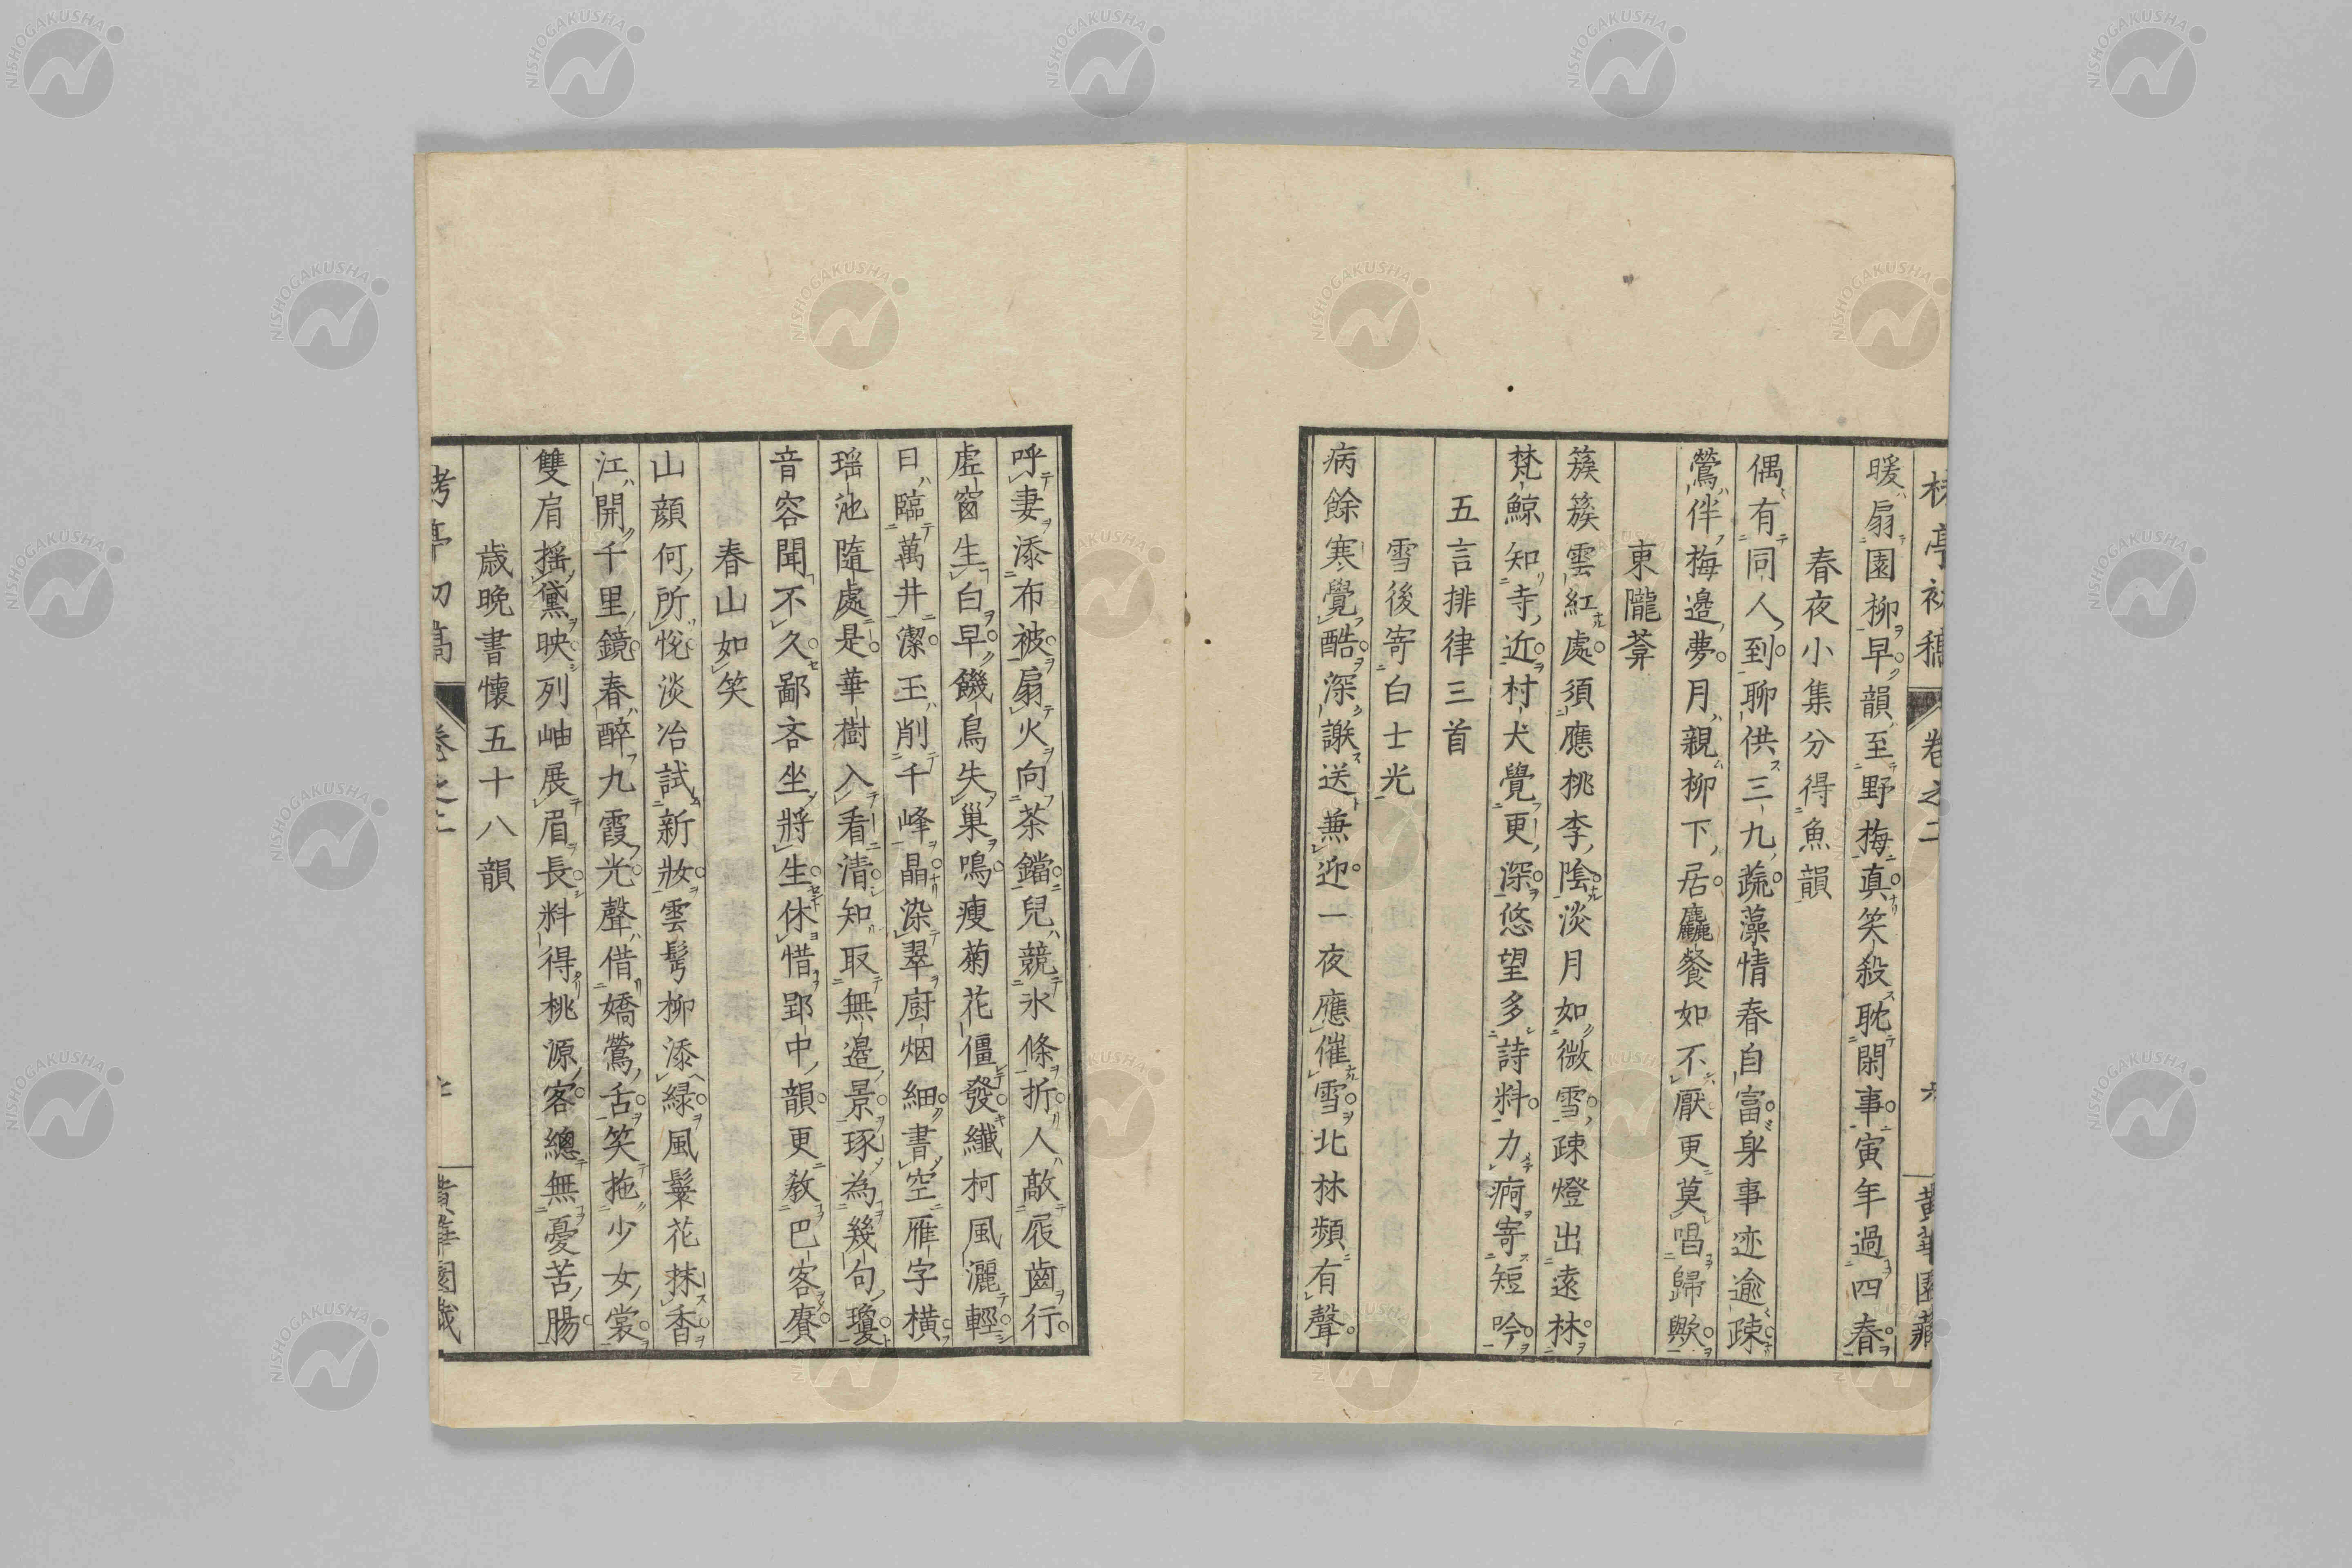 暖扇園柳早韻至野梅真笑殺耽閑事寅年過四春
春夜小集分得魚韻
偶有同人到聊供三九蔬藻情春自富身事迹逾疎
鶯伴梅邊夢月親柳下居麤餐如不厭更莫唱歸歟
東隴莽
簇簇雲紅處須應桃李陰淡月如微雪疎燈出遠林
梵鯨知寺近村犬覺更深悠望多詩料力痾寄短吟
五言排律三首
雪後寄白士光
病餘寒覺酷深謝送兼迎一夜應催雪北林頻有聲
呼妻添布被扇火向茶鐺兒競氷條折人敲屐齒行
虛窗生白早饑鳥失巢鳴瘦菊花僵發纖柯風灑輕
日臨萬井潔玉削千峰晶染翠廚烟細書空雁字橫
瑶池隨處是華樹入看清知取無邊景琢為幾句瓊
音容聞不久鄙吝坐將生休惜郢中韻更教巴客賡
春山如笑
山顔何所悅淡冶試新妝雲髩柳添緑風鬟花抹香
江開千里鏡春醉九霞光聲借嬌鶯舌笑拖少女裳
雙肩搖黛映列岫展眉長料得桃源客總無憂苦腸
歳晩書懷五十八韻